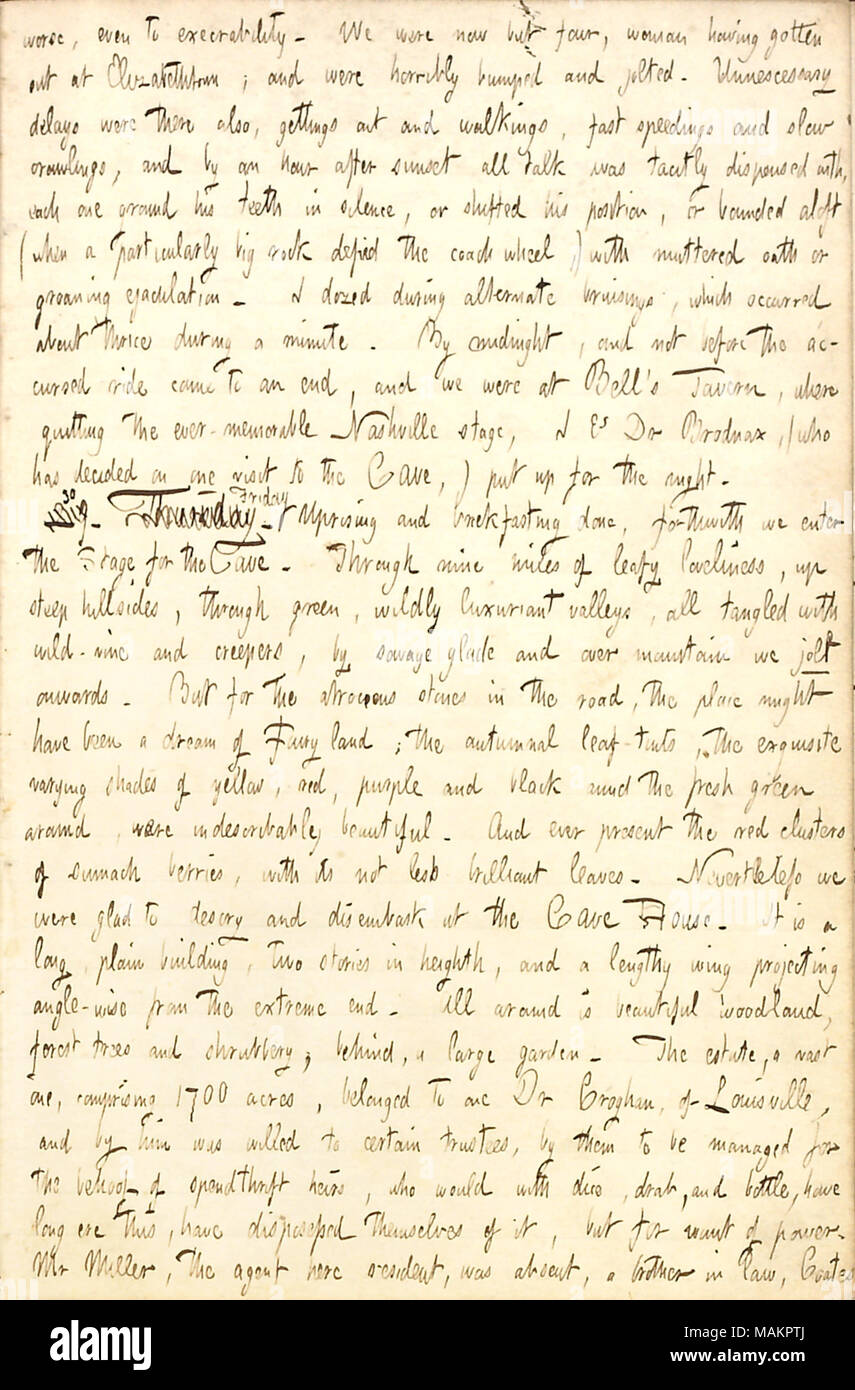 worse, even to execrability_ We were now but four, woman having gotten
out at Elizabethtown; and were horribly bumped and jolted. Unnescessary
delays were there also, gettings out and walkings, fast speedings and slow
crawlings, and by an hour after sunset all talk was tacitly dispensed with,
each one ground his teeth in silence, or shifted his position, or bounded aloft
(when a particularly big rock defied the coach wheel,) with muttered oath or
groaning ejaculation_ I dozed during alternate bruisings, which occurred
about thrice during a minute. By midnight, and not before the ac-
cursed ride came to an end, and we were at Bell's Tavern, where
quitting the ever-memorable Nashville stage, I & Dr Brodnax, (who
has decided on one visit to the Cave,) put up for the night.
30 Thursday Friday_ Uprising and breakfasting done, forthwith we enter
the Stage for the Cave_ Through nine miles of leafy loveliness, up
steep hillsides, through green, wildly luxuriant valleys, all tangled with
wild-vine and creepers, by savage glade and over mountain we jolt
onwards_ But for the atrocious stones in the road, the place might
have been a dream of Fairy land; the autumnal leaf-tints, the exquisite
varying shades of yellow, red, purple and black amid the fresh green
around, were indescribably beautiful_ And ever present the red clusters
of sumach berries, with its not less brilliant leaves_ Nevertheless we
were glad to descry and disembark at the Cave House_ It is a
long, plain building, two stories in heighth, and a lengthy wing projecting
angle-wise from the extreme end_ All around is beautiful woodland,
forest trees and shrubbery; behind, a large garden_ The estate, a vast
one, comprising 1700 acres, belonged to one Dr Croghan, of Louisville,
and by him was willed to certain trustees, by them to be managed for
the behoof of spendthrift heirs, who would with dice, drab, and bottle, have
long ere this, have dispossessed themselves of it, but for want of power_
Mr Miller, the agent here resident, was absent, a brother in law, Coates
alamy
Image ID: MAKPTJ
www.alamy.com